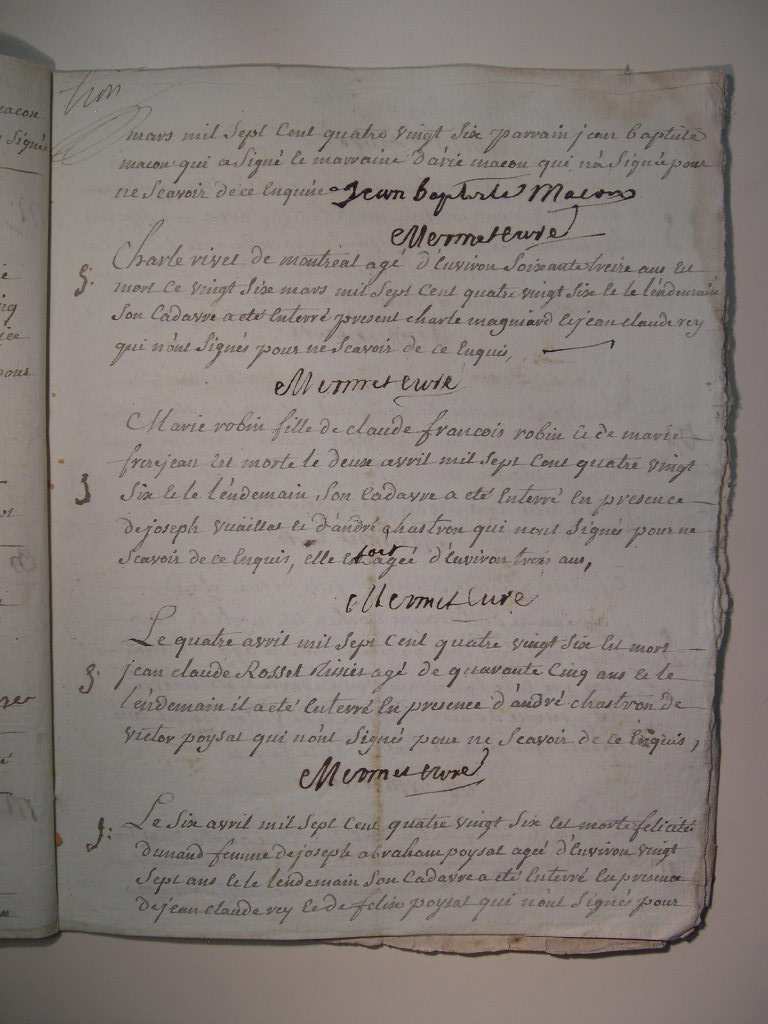 trois
mars mil sept cent quatre vingt six parrain jean baptiste
macon qui a signé le marraine marie macon qui n'a signée pour
ne scavoir de ce enquise jean baptiste macon
Mermet curé
S: Charle rivet de montréal agé d'environ soixante treize ans est
mort ce vingt six mars mil sept cent quatre vingt six le le lendemain
son cadavre a eté enterré present charle magniard et jean claude rey
qui n'ont signés pour ne scavoir de ce enquis,
Mermet curé
Marie robin fille de claude françois robin et de marie
frerejean est morte le deux avril mil sept cent quatre vingt
S six et le lendemain son cadavre a eté enterré en presence
de joseph vuaillas et d'andré chastron qui n'ont signés pour ne
scavoir de ce enquis, elle est agée d'environ trois ans,
Mermet curé
Le quatre avril mil sept cent quatre vingt six est mort
S: jean claude Rosset agé de quarante cinq ans et le
lendemain il a eté enterré en presence d'andré chastron de
victor poysat qui n'ont signés pour ne scavoir de ce enquis,
Mermet curé
S: Le six avril mil sept cent quatre vingt six est morte felicité
dunand femme de joseph abraham poysat agée d'environ vingt
sept ans et le lendemain son cadavre a eté enterré en presence
de jean claude rey et de felix poysat qui n'ont signés pour